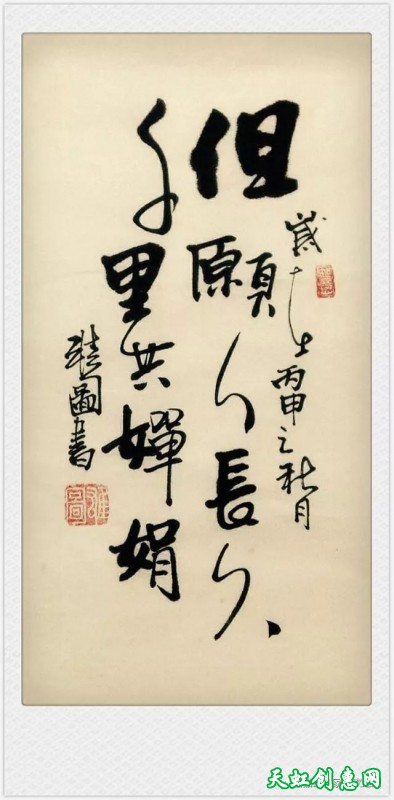 歲在丙申之秋月
但願人長久
千里共嬋娟
圖書
天虹创惠网